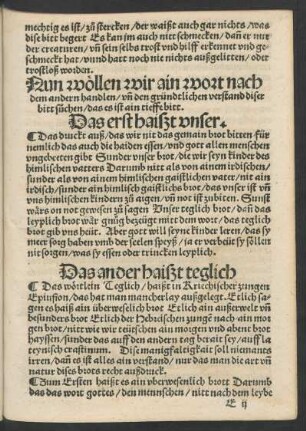 mechtig es ist/ zů stercken/ der waißt auch gar nichts/ was
dise bitt begert Es kan jm auch nit schmecken/ dañ er mit
der creaturen/ vñ sein selbs trost vnd hilff erkennet vnd ge-
schmeckt hat/ vnnd hatt noch nie nichts außgelitten/ oder
trostloß worden.
Nun wöllen wir ain wort nach
dem andern handlen/ vñ den gründtlichen verstand diser
bitt süchen/ das es ist ain tieffe bitt.
Das erst haißt vnser.
¶ Das durckt auß/ das wir nit das gemain brot bitten für
nemlich das auch die haiden essen/ vnd gott allen menschen
vngebeten gibt Sunder vnser brot/ die wir seyn kinder des
himlischen vatters Darumb nitt als von ainem irdischen/
sunder als von ainem himlischen gaistlichen vatter/ nitt ain
irdisch/ sunder ain himlisch gaistlichs brot/ das vnser ist vñ
vns himlischen kindern zů aigen/ vñ not ist zubiten. Sunst
wärs on not gewesen zů sagen Vnser teglich brot/ dañ das
leyplich brot wär gnůg bezeügt mitt dem wort/ das teglich
brot gib vns heüt. Aber gott will seyne kinder leren/ das sy
meer sorg haben vmb der seelen speyß/ ja er verbeüt sy söllen
nit sorgen/ was sy essen oder trincken leyplich.
Das ander haißt teglich
¶ Das wörtlein Teglich/ haißt in Kriechischer zungen
Epiusion/ das hat man mancherlay außgelegt. Etlich sa-
gen es haiß ain überweselich brot Etlich ain außerwelt vñ
besunder brot Etlich der Hebreischen zunge nach ain mor
gen brot/ nitt wie wir teütschen ain morgen vnd abent brot
hayssen/ sunder das auff den andern tag berait sey/ auff la
teynisch crastinum. Dise manigfaltigkait soll niemants
irren/ dañ es ist alles ain verstand/ nur das man die art vñ
natur dises brots recht außdruck.
¶ Zum Ersten haißt es ain vberwesenlich brott Darumb
das das wort gottes/ den mennschen/ nitt nach dem leybe
E ij